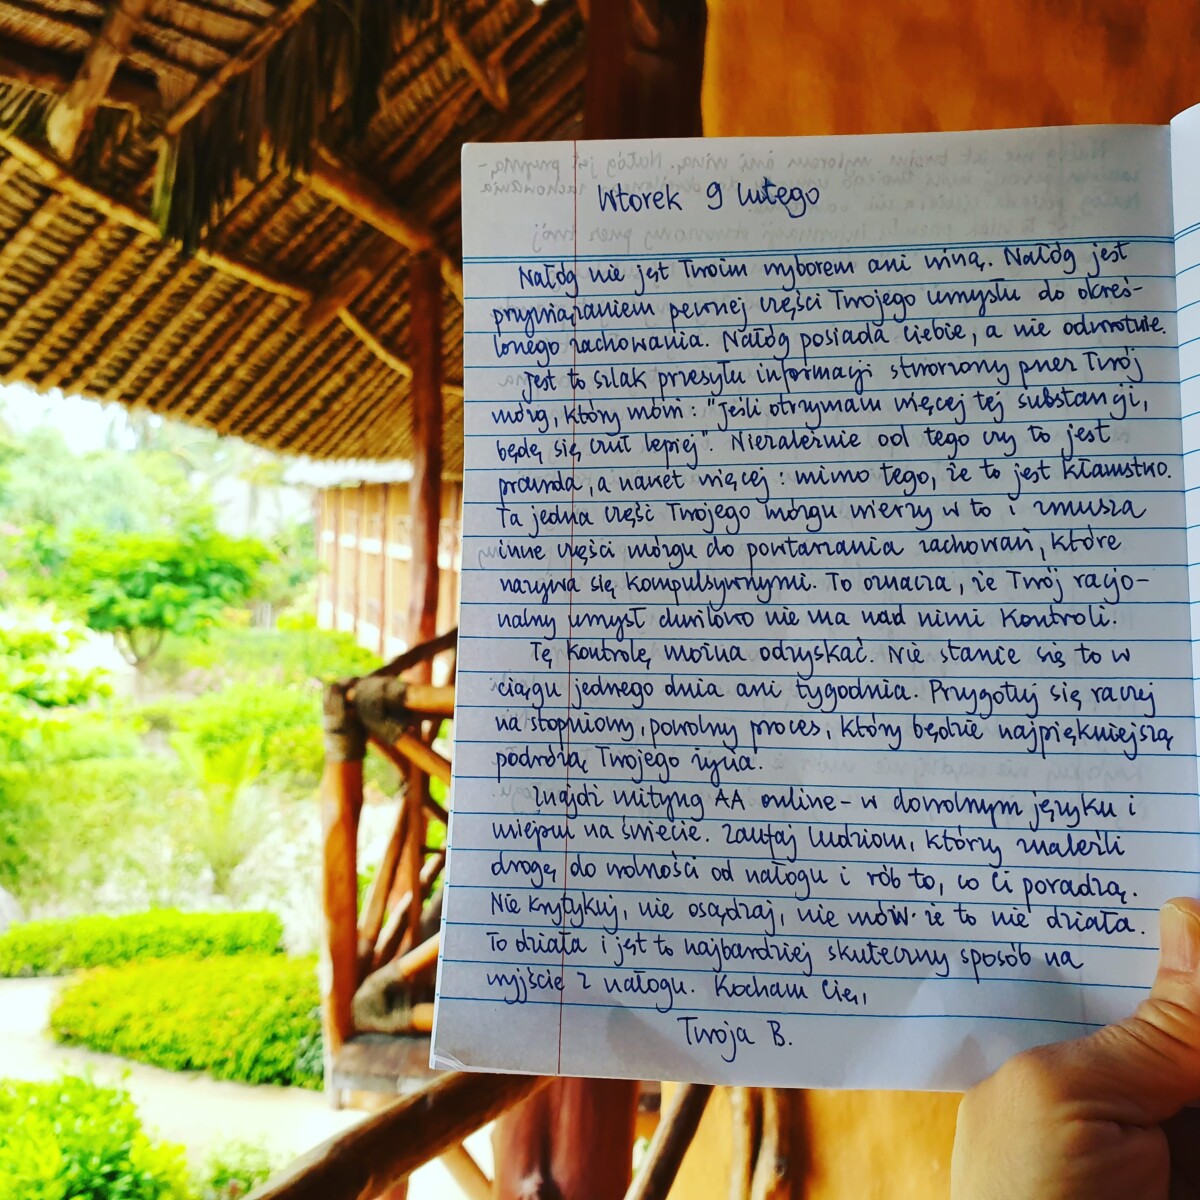 Wtorek 9 lutego
Nałóg nie jest Twoim wyborem ani winą. Nałóg jest
przywiązaniem pewnej części Twojego umysłu do okreś-
lonego zachowania. Nałóg posiada Ciebie, a nie odwrotnie.
Jest to szlak przesyłu informacji stworzony przez Twój
mózg, który mówi: "Jeśli otrzymam więcej tej substancji,
będę się czuł lepiej". Niezależnie od tego czy to jest
prawda, a nawet więcej: mimo tego, że to jest kłamstwo.
Ta jedna część Twojego mózgu wierzy w to i zmusza
inne części mózgu do powtarzania zachowań, które
nazywa się kompulsywnymi. To oznacza, że Twój racjo-
nalny umysł chwilowo nie ma nad nimi kontroli.
Tę kontrolę można odzyskać. Nie stanie się to w
ciągu jednego dnia ani tygodnia. Przygotuj się raczej
na stopniowy, powolny proces, który będzie najpiękniejszą
podróżą Twojego życia.
Znajdź mityng AA online - w dowolnym języku i
miejscu na świecie. Zaufaj ludziom, którzy znaleźli
drogę do wolności od nałogu i rób to, co Ci poradzą.
Nie krytykuj, nie osądzaj, nie mów że to nie działa.
To działa i jest to najbardziej skuteczny sposób na
wyjście z nałogu. Kocham Cię,
Twoja B.